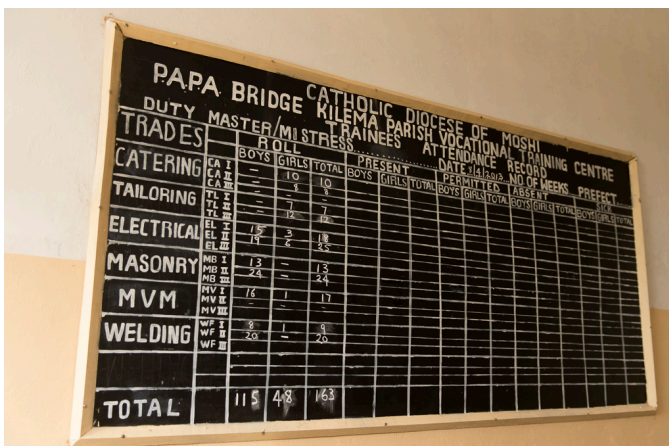 CATHOLIC DIOCESE OF MOSHI
PAPA BRIDGE KILEMA PARISH VOCATIONAL TRAINING CENTRE
TRAINEES ATTENDANCE RECORD
DUTY MASTER/MISTRESS DATE NO OF WEEKS PREFECT
TRADES ROLL PRESENT ABSENT
PERMITTED
BOYS GIRLS TOTAL BOYS GIRLS TOTAL BOYS GIRLS TOTAL BOYS GIRLS TOTAL BOYS GIRLS TOTAL
CATERING CA I – 10 10
CA II – 8 8
CA III
TAILORING TL I – – –
TL II – 7
TL III – 12 12
ELECTRICAL EL I 15 3 18
EL II 19 6 25
EL III
MASONRY MB I 13 – 13
MB II 24 – 24
MB III
MVM MV I 16 1 17
MV II – – –
MV III
WELDING WF I 8 1 9
WF II 20 – 20
WF III
TOTAL 115 48 163